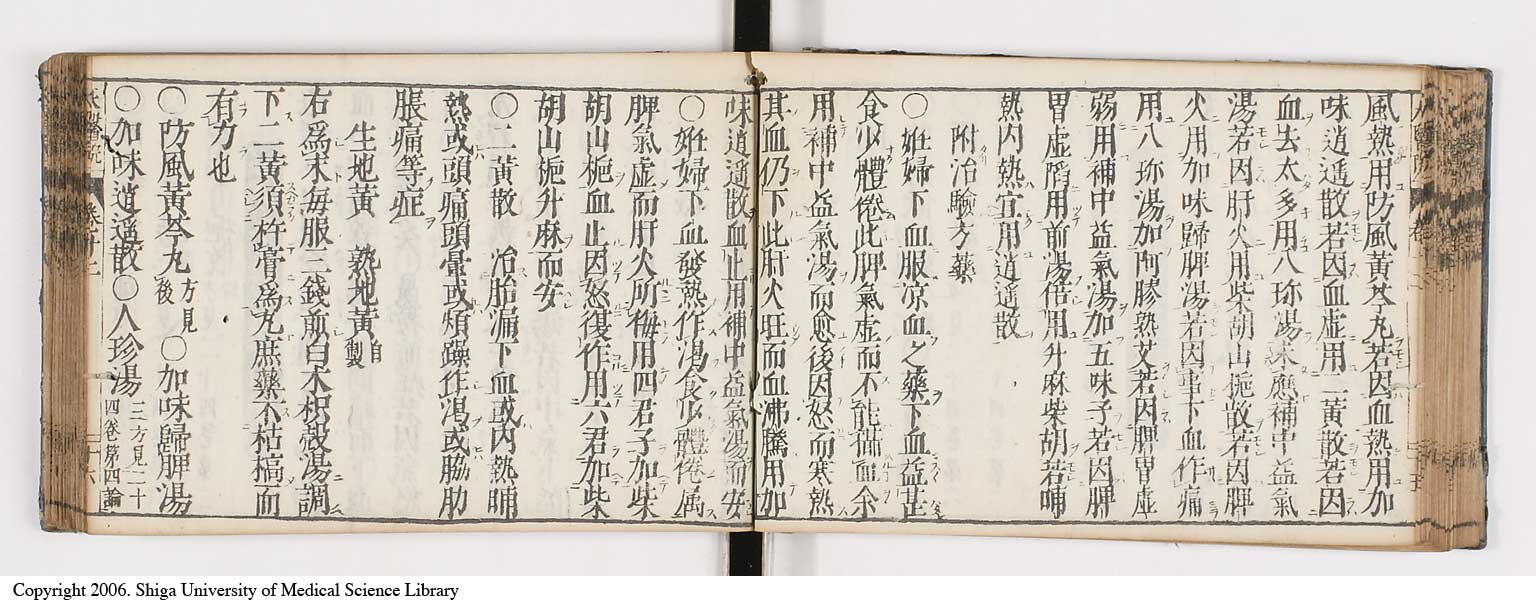 風熱用防風黃芩丸若因血熱用加
味逍遥散若因血虚用二黃散若因
血去太多用八珎湯未應補中益氣
湯若因肝火用柴胡山梔散若因脾
火用加味歸脾湯若因事下血作痛
用八珎湯加阿膠熟艾若因脾胃虚
弱用補中益氣湯加五味子若因脾
胃虚陷用前湯倍用升麻柴胡若晡
熱内熱宜用逍遥散
附治驗方藥
○妊婦下血服凉血之藥下血益甚
食少體倦此脾氣虚而不能攝血余
用補中益氣湯而愈後因怒而寒熱
其血仍下此肝火旺而血沸騰用加
味逍遥散血止用補中益氣湯而安
○妊婦下血發熱作渴食少體倦属
脾氣虚而肝火所侮用四君子加柴
胡山梔血止因怒復作用六君加柴
胡山梔升麻而安
○二黃散 治胎漏下血或内熱晡
熱或頭痛頭暈或煩躁作渴或脇肋
脹痛等症
生地黃 熟地黃自製
右爲末每服三錢煎白术枳殻湯調
下二黃須杵膏爲丸庶藥不枯槁而
有力也
○防風黃芩丸方見後○加味歸脾湯
○加味逍遥散○八珍湯三方見二十四卷第四論
Copyright 2006. Shiga University of Medical Science Library